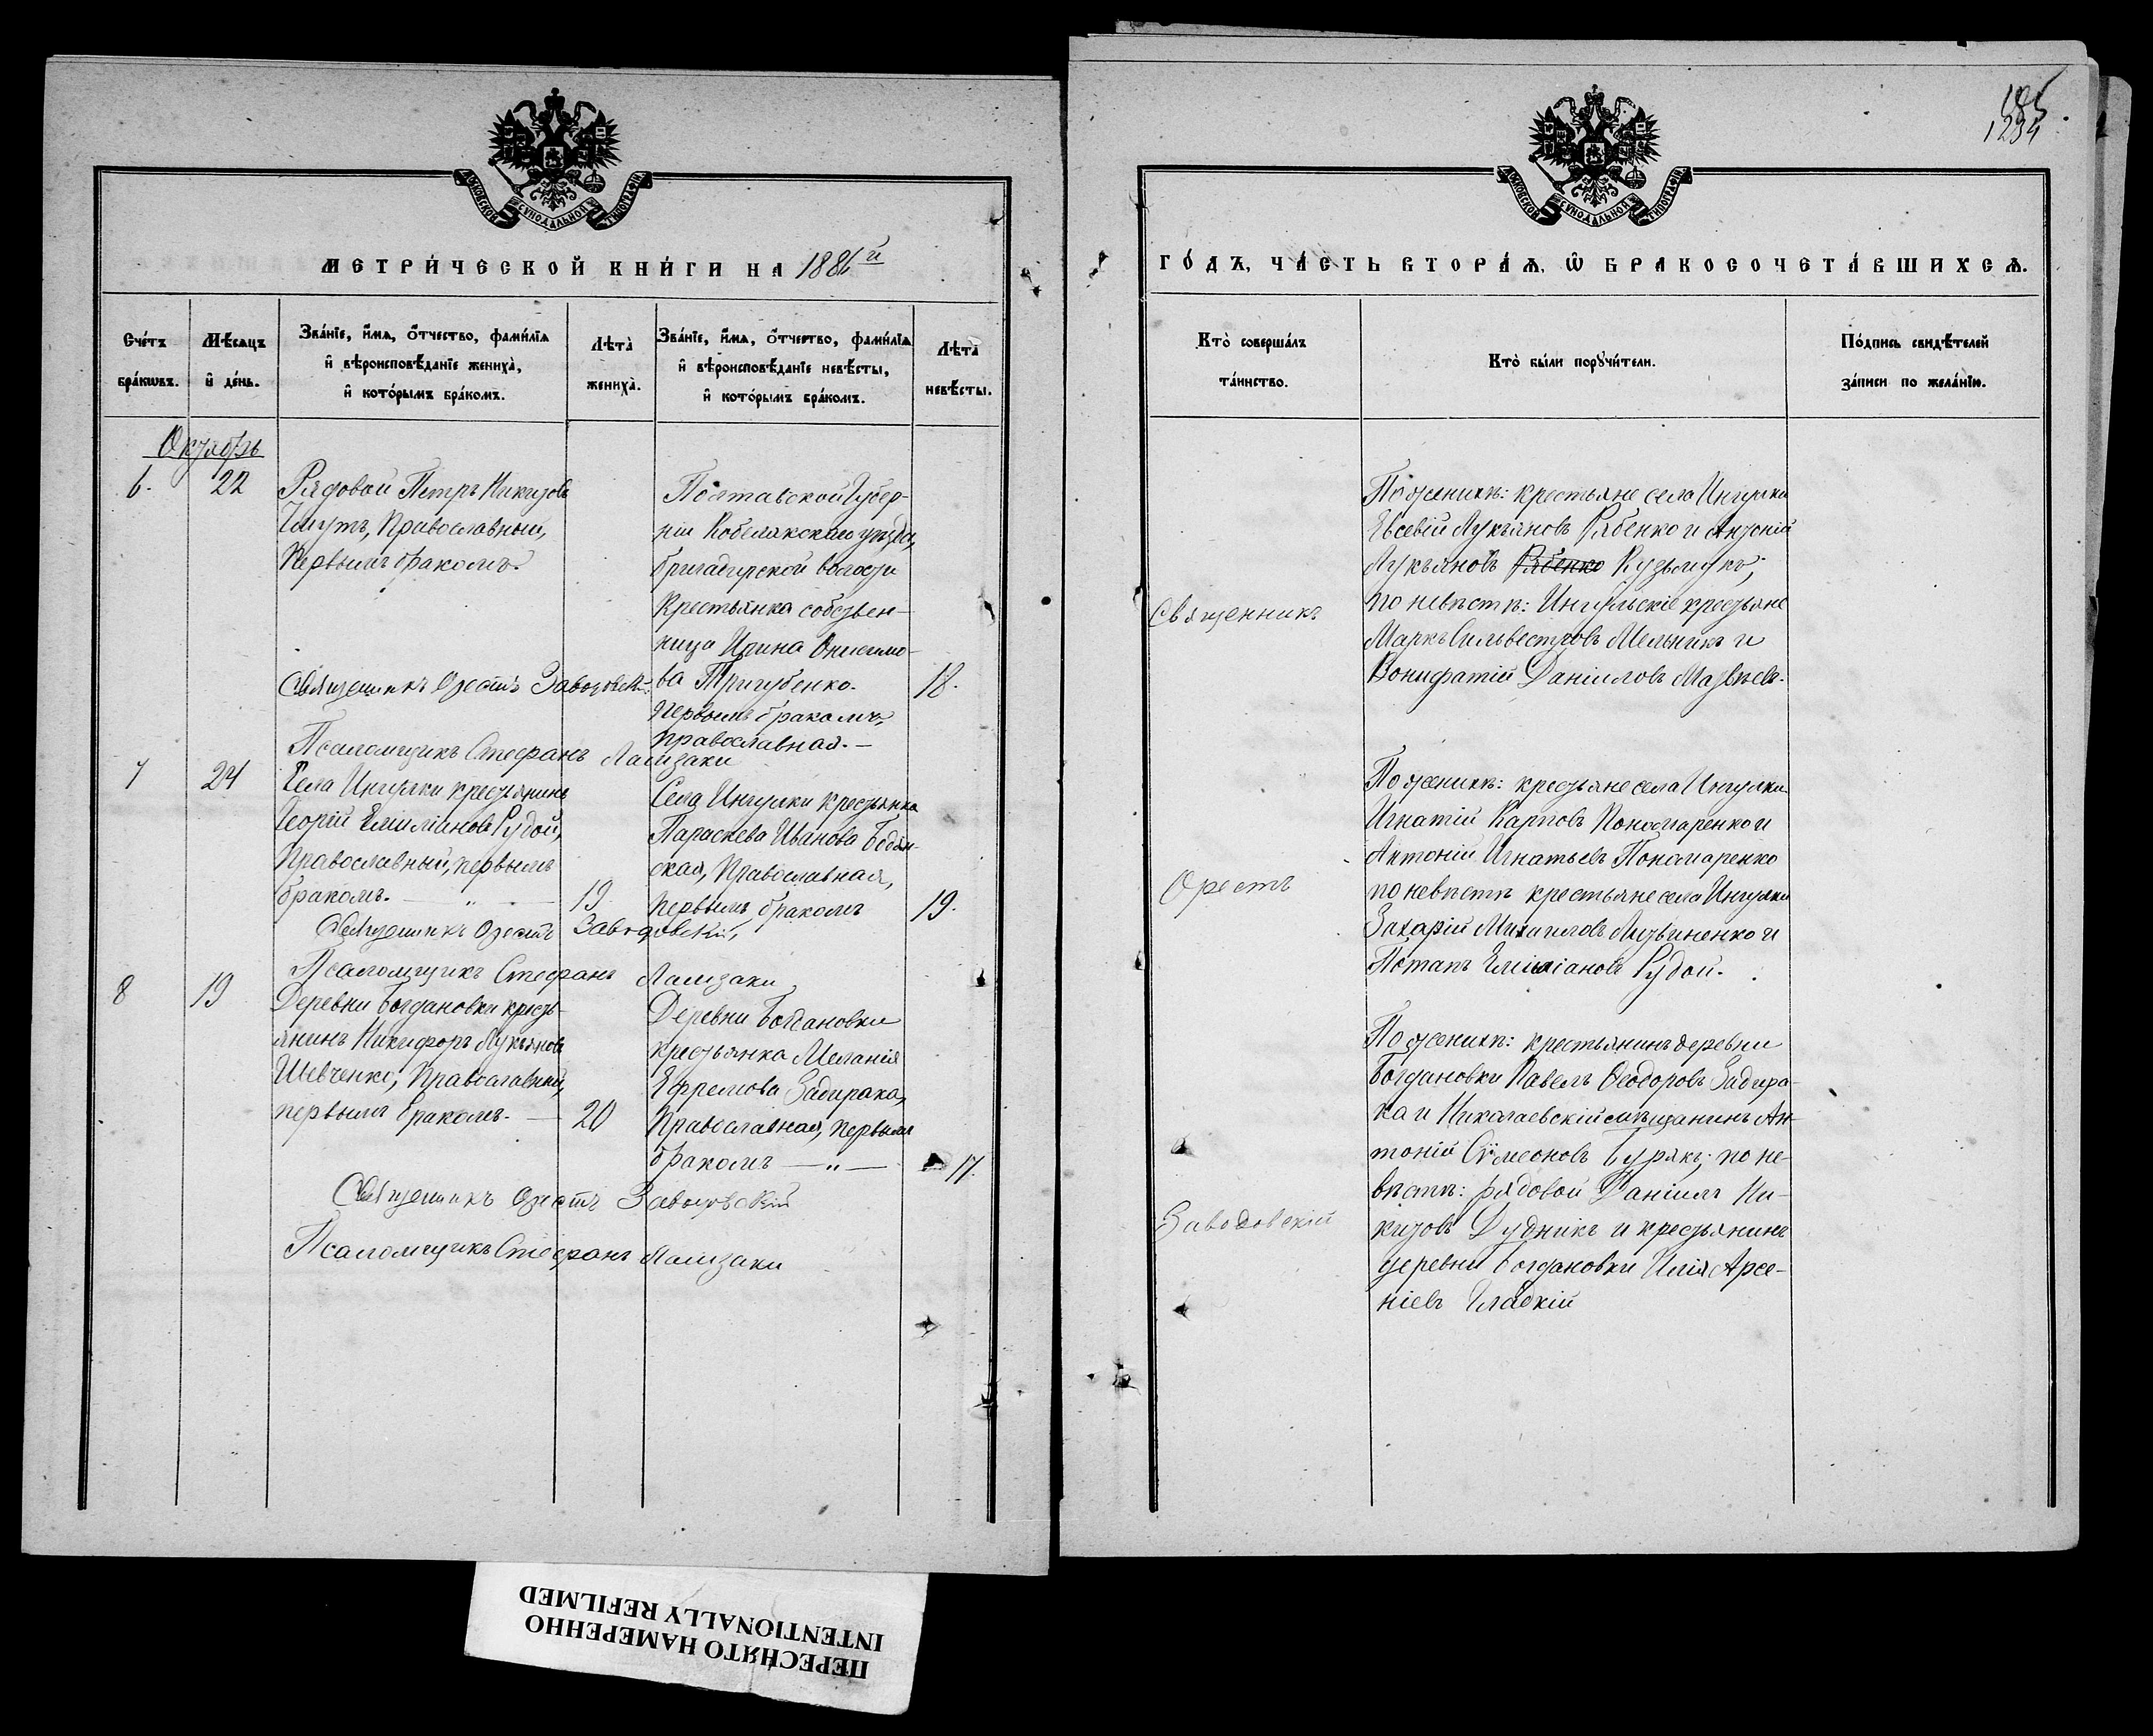 МОСКОВСКОЙ СѴНОДАЛЬНОЙ ТИПОГРАФІИ
МЕТРИ́ЧЕСКОЙ КНИ́ГИ НА 1886й
Сче́тъ бра́кѡвъ.
Мѣ́сяцъ и҆ де́нь.
Зва́нїе, и҆́мѧ, ѻ҆́тчество, фами́лїѧ
и҆ вѣроисповѣ́данїе жениха̀,
и҆ кото́рымъ бра́комъ.
Лѣта̀ жениха̀.
Зва́нїе, и҆́мѧ, ѻ҆́тчество, фами́лїѧ
и҆ вѣроисповѣ́данїе невѣ́сты,
и҆ кото́рымъ бра́комъ.
Лѣта̀ невѣ́сты.
Октябрь
6. 22
Рядовой Петръ Никитовъ
Православный,
первымъ бракомъ.
Полтавской Губер-
ніи Кобелякскаго уѣзда,
бригадирской волости
Крестьянка собствен-
ница Ирина Онисимо-
ва Тригубенко.
первымъ бракомъ,
православная. —
18.
Священникъ Орестъ Заводовскій
Псаломщикъ Стефанъ
7 24
Села Ингулки крестьянинъ
Георгій Емиліановъ Рудой,
Православный, первымъ
бракомъ. — „ —
19
Села Ингулки крестьянка
Параскева Иванова Бодян-
ская, Православная,
первымъ бракомъ
19.
Священникъ Орестъ Заводовскій,
Псаломщикъ Стефанъ
8 19
Деревни Богдановки кресть-
янинъ Никифоръ Лукьяновъ
Шевченко, Православный,
первымъ бракомъ. —
20
Деревни Богдановки
крестьянка Меланія
Ефремова Задирака,
Православная, первымъ
бракомъ — „ —
17.
Священникъ Орестъ Заводовскій
Псаломщикъ Стефанъ
МОСКОВСКОЙ СѴНОДАЛЬНОЙ ТИПОГРАФІИ
185.
1234
ГО́ДЪ, ЧА́СТЬ ВТОРА́Ѧ, Ѡ҆ БРАКОСОЧЕТА́ВШИХСѦ.
Кто̀ соверша́лъ
та́инство.
Кто̀ бы́ли порꙋчи́тели.
По́дпись свидѣ́телей
за́писи по жела́нїю.
Священникъ
Орестъ
Заводовскій
По женихѣ: крестьяне села Ингулки
Евсевій Лукьяновъ Рябенко и Антоній
Лукьяновъ Рябенко Кузьмукъ;
по невѣстѣ: Ингульскіе крестьяне
Маркъ Сильвестровъ Мельникъ и
Вонифатій Даніиловъ Матвѣевъ.
По женихѣ: крестьяне села Ингулки
Игнатій Карповъ Пономаренко и
Антоній Игнатьевъ Пономаренко
по невѣстѣ крестьяне села Ингулки
Захарій Михаиловъ Литвиненко и
Потапъ Емиліановъ Рудой.
По женихѣ: крестьянинъ деревни
Богдановки Павелъ Ѳеодоровъ Задира-
ка и Николаевскій мѣщанинъ Ан-
тоній Сѵмеоновъ Бурякъ; по не-
вѣстѣ: рядовой Даніилъ Ни-
китовъ Дудникъ и крестьянинъ
деревни Богдановки Илія Арсе-
ніевъ Гладкій
ПЕРЕСНЯТО НАМЕРЕННО
INTENTIONALLY REFILMED